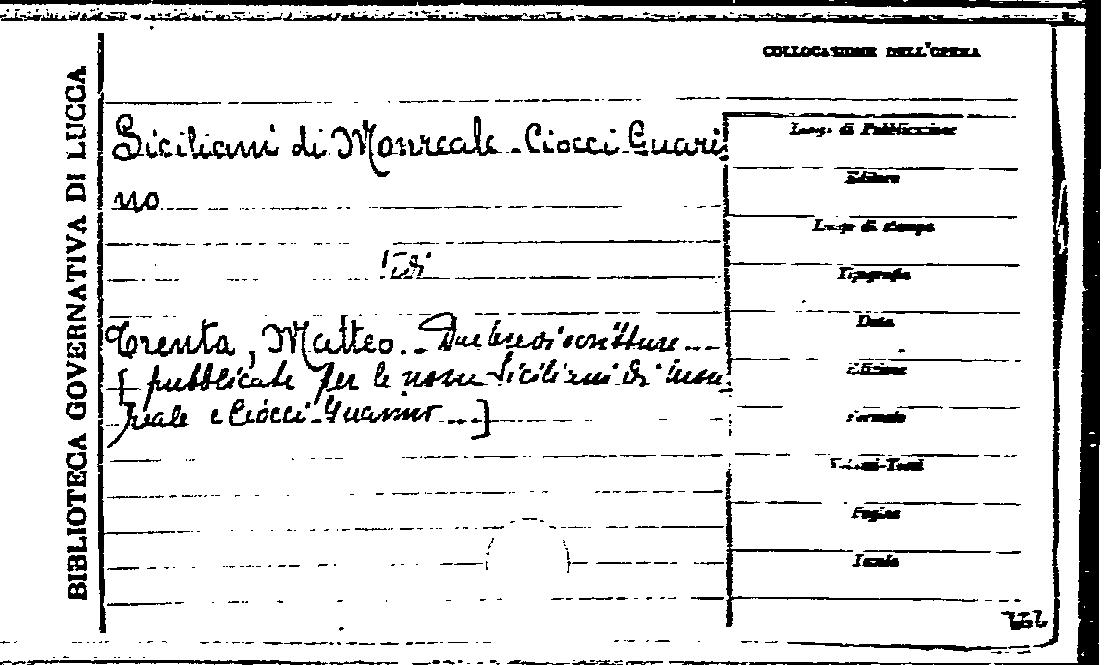 BIBLIOTECA GOVERNATIVA DI LUCCA
COLLOCAZIONE DELL'OPERA
Siciliani di Monreale - Ciocci Guari
no
Vedi
Trenta, Matteo.. Due brevi scritture ...
[ pubblicate per le nozze Siciliani di Mon
reale e Ciocci-Guarino ...]
Luogo di Pubblicazione
Editore
Luogo di stampa
Tipografia
Data
Edizione
Formato
Volumi-Tomi
Pagine
Tavole